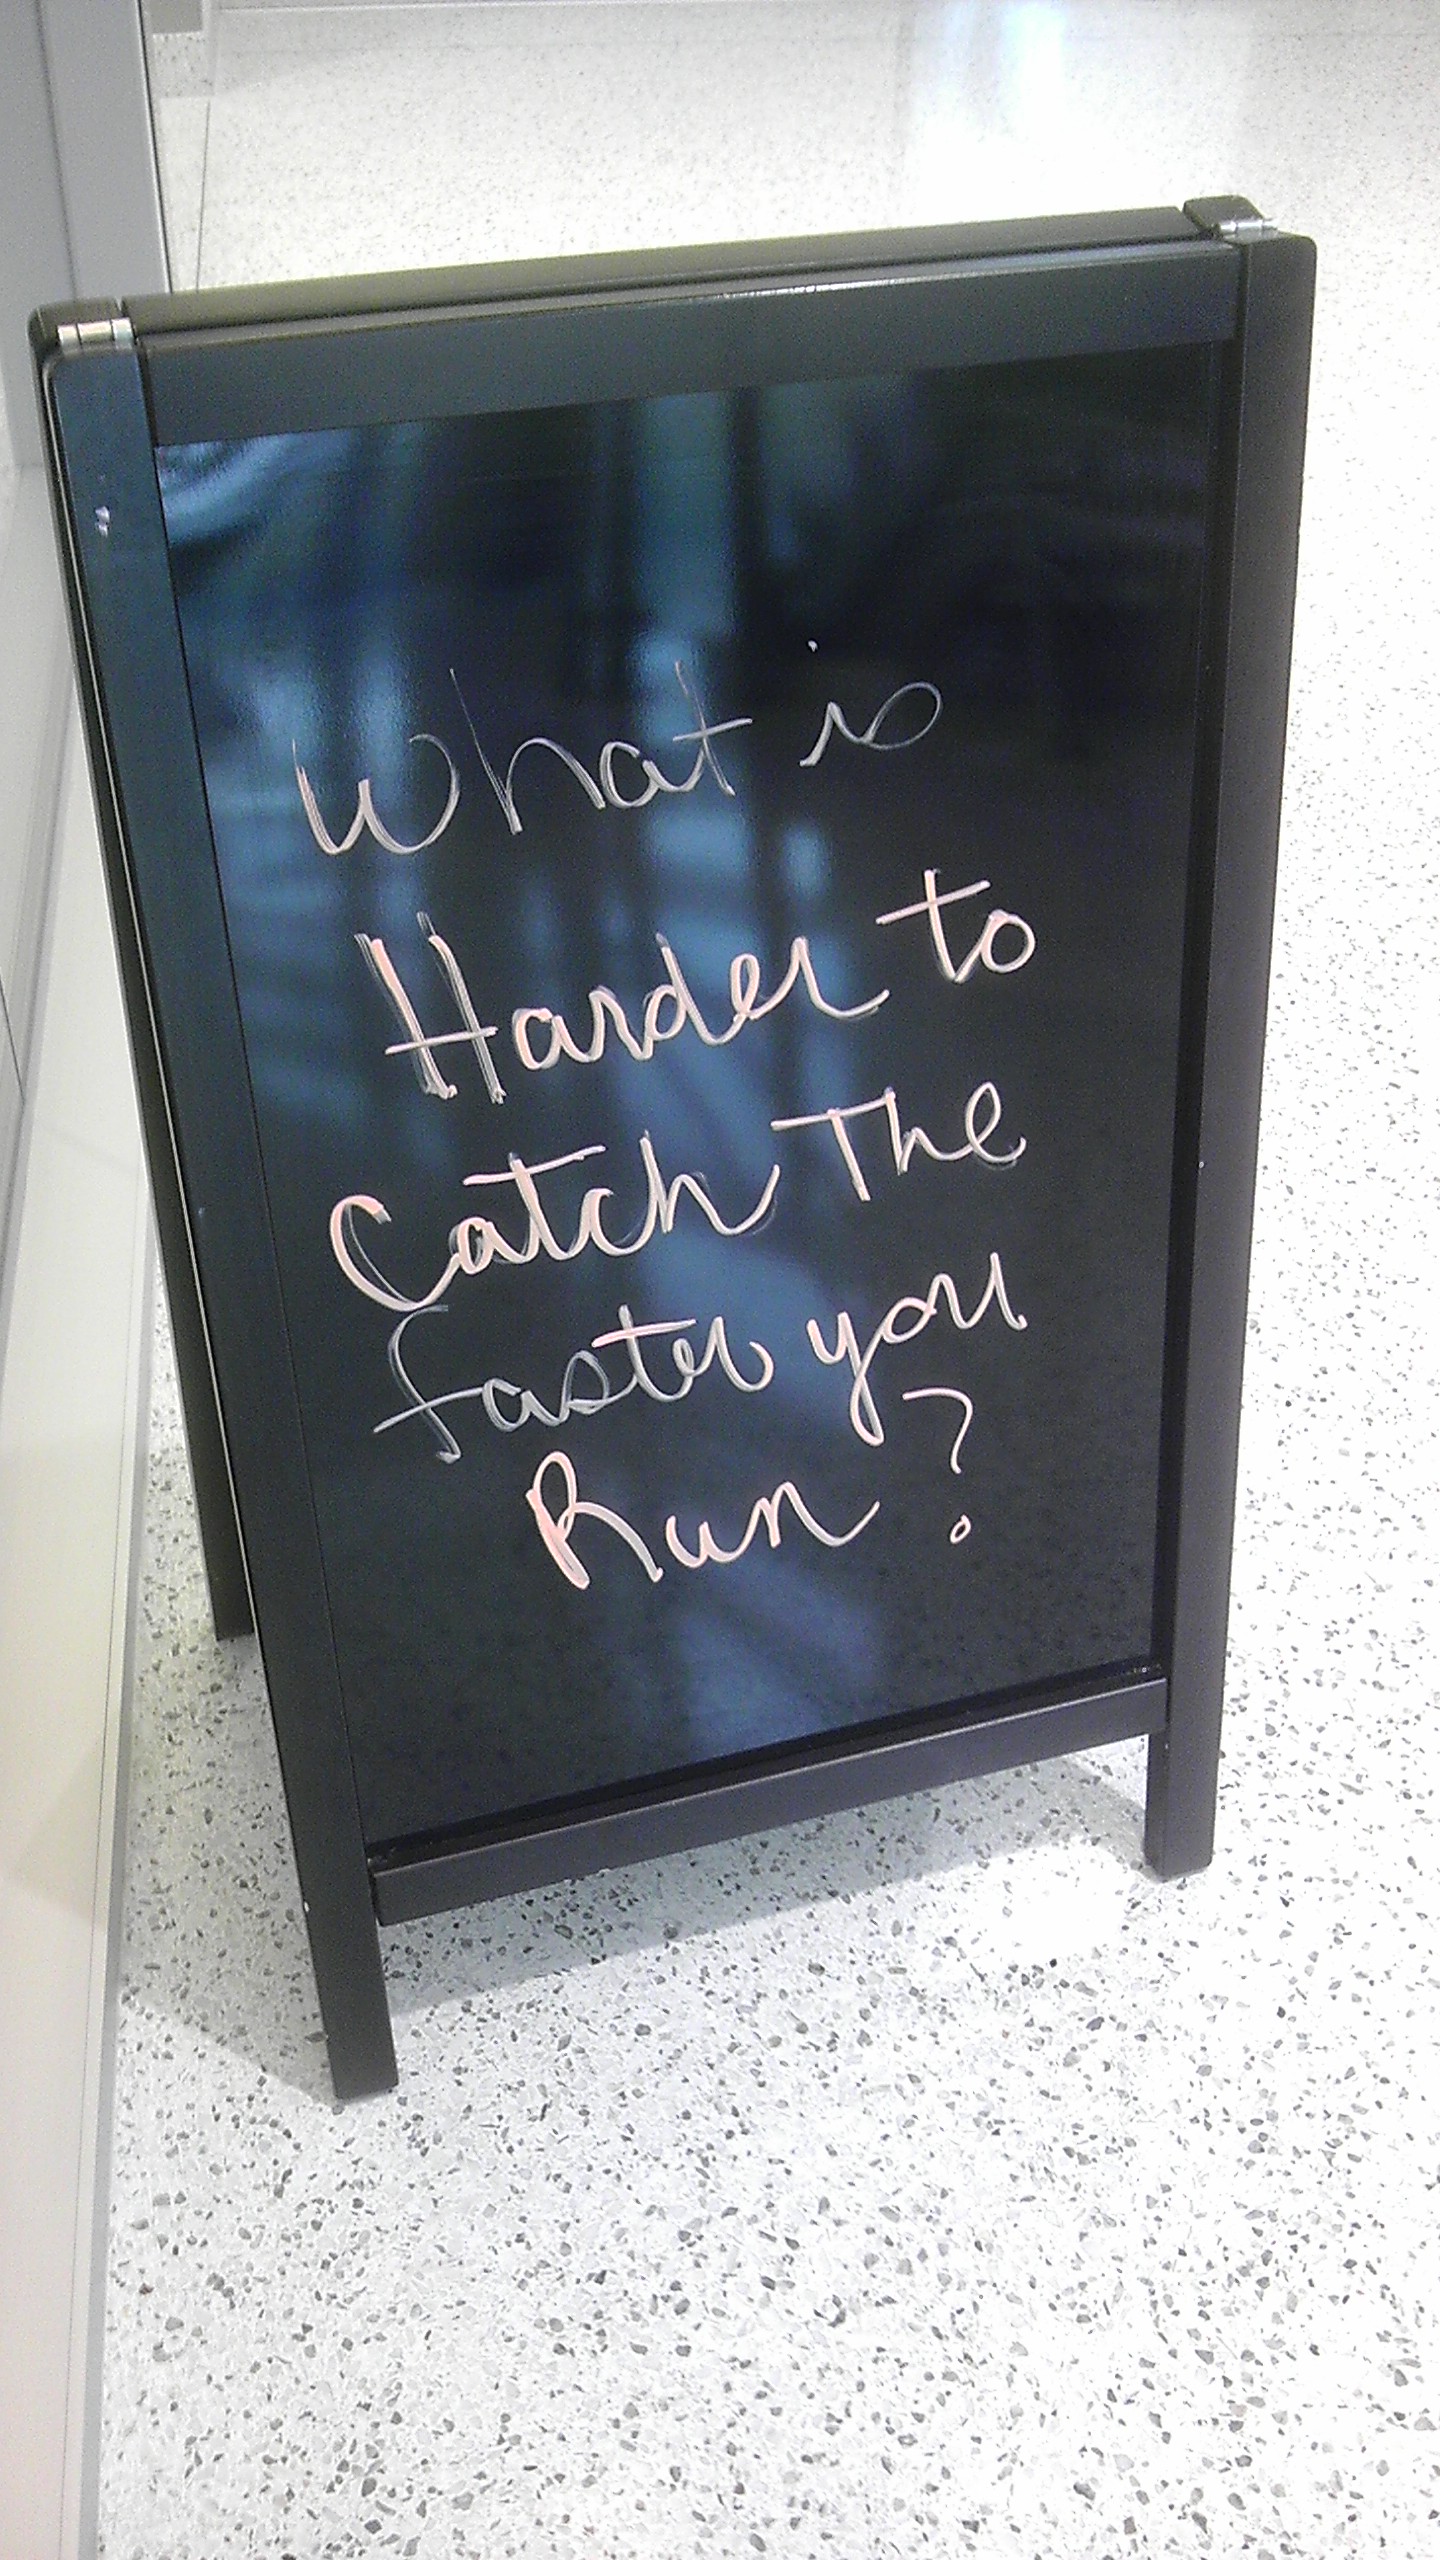 What is
Harder to
Catch The
faster you
Run?